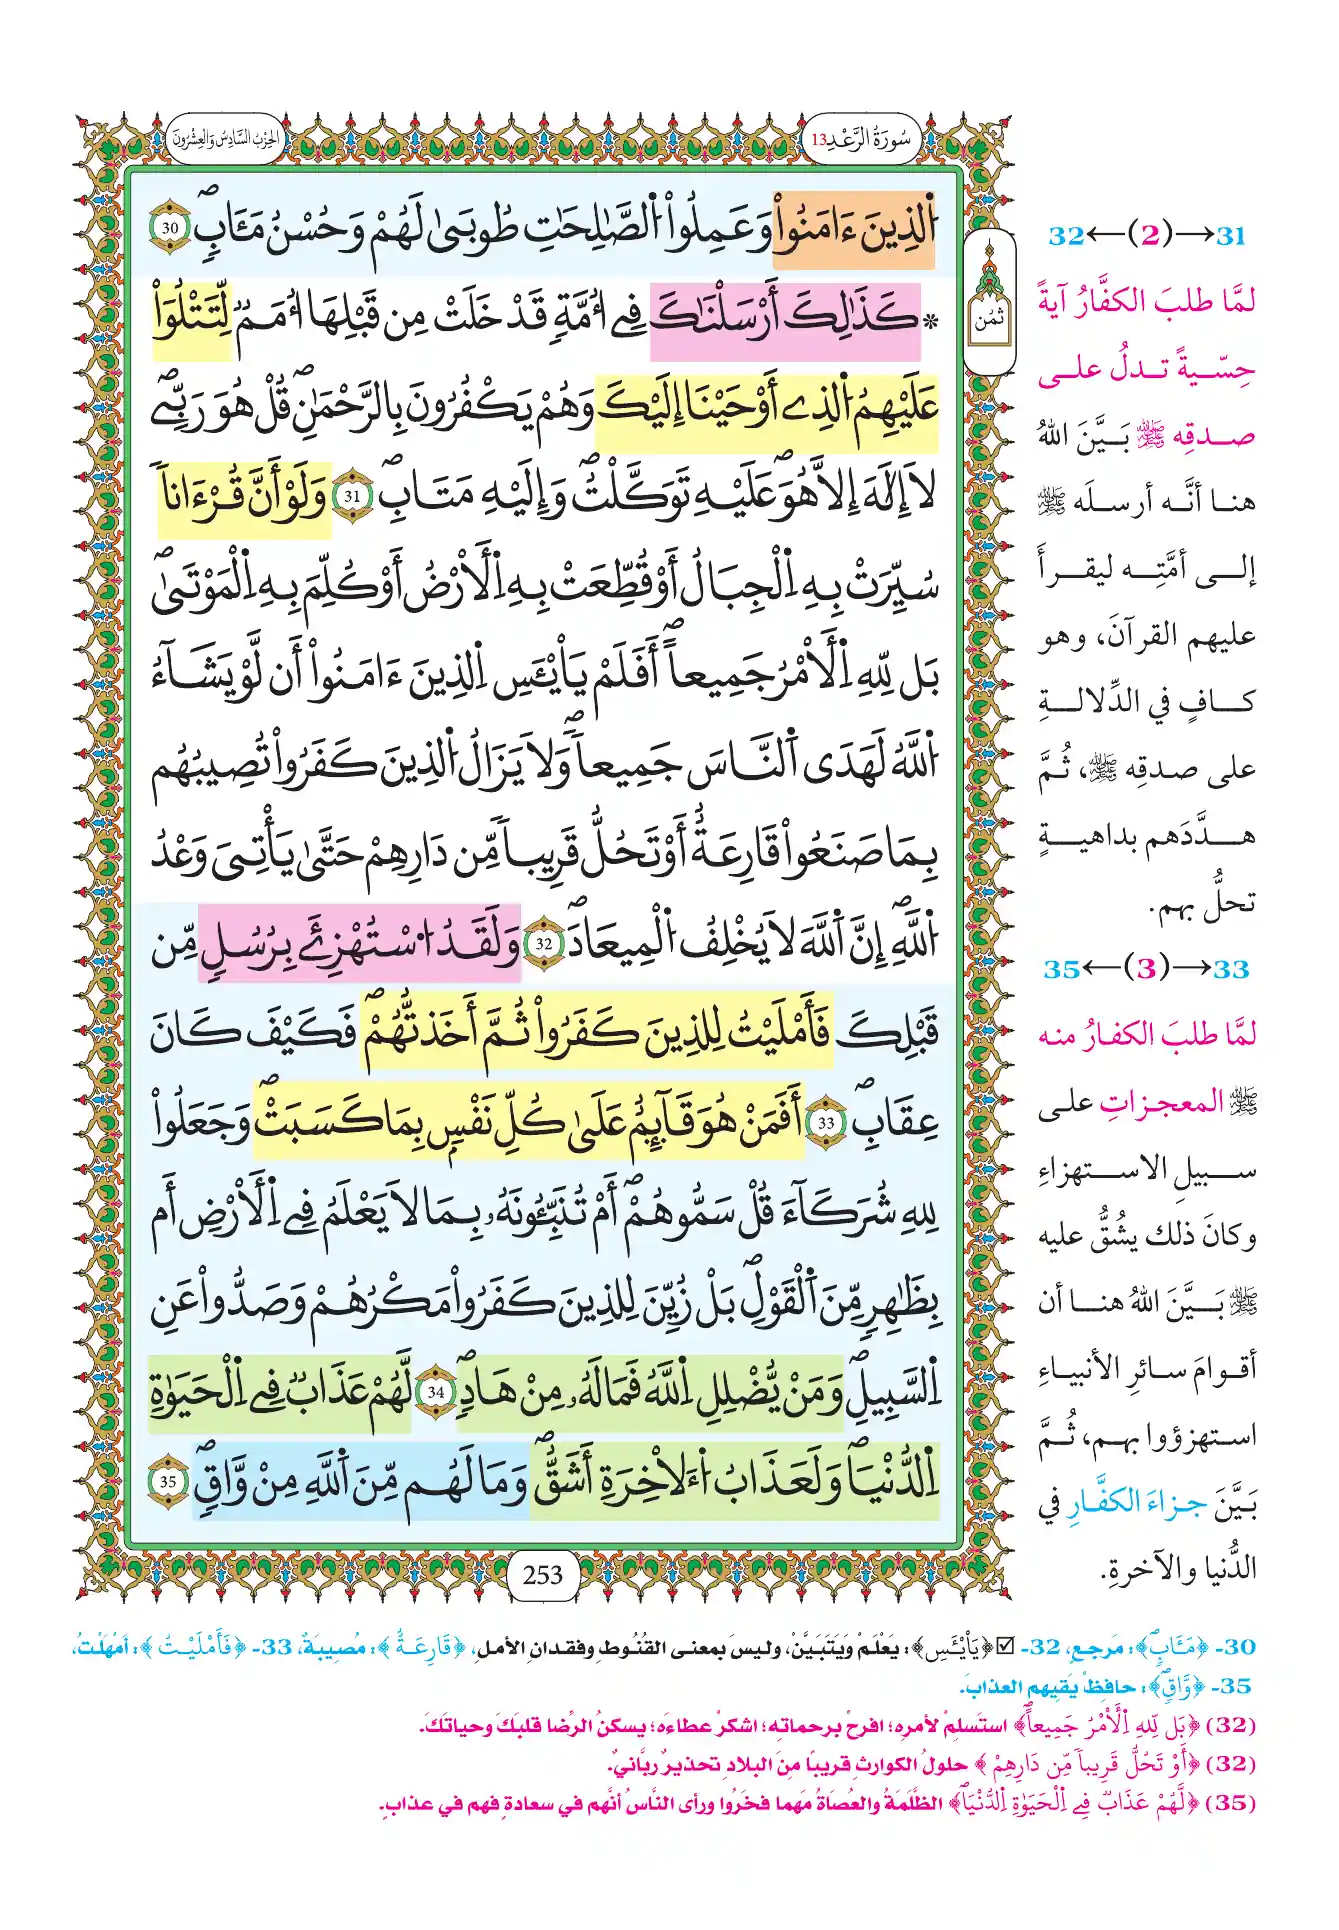 سُورَةُ الرَّعْدِ 13
الحِزْبُ السَّادِسُ وَالعِشْرُونَ
اِ۬لذِينَ ءَامَنُواْ وَعَمِلُواْ اُ۬لصَّٰلِحَٰتِ طُوبَىٰ لَهُمْ وَحُسْنُ مَـَٔابٖۖ 30
* كَذَٰلِكَ أَرْسَلْنَٰكَ فِےٓ أُمَّةٖ قَدْ خَلَتْ مِن قَبْلِهَآ أُمَمٞ لِّتَتْلُوَاْ
عَلَيْهِمُ اُ۬لذِےٓ أَوْحَيْنَآ إِلَيْكَ وَهُمْ يَكْفُرُونَ بِالرَّحْمَٰنِۖ قُلْ هُوَ رَبِّےۖ
لَآ إِلَٰهَ إِلَّا هُوَۖ عَلَيْهِ تَوَكَّلْتُۖ وَإِلَيْهِ مَتَابِۖ 31 وَلَوْ أَنَّ قُرْءَاناٗ
سُيِّرَتْ بِهِ اِ۬لْجِبَالُ أَوْ قُطِّعَتْ بِهِ اِ۬لْأَرْضُ أَوْ كُلِّمَ بِهِ اِ۬لْمَوْتَىٰۖ
بَل لِّلهِ اِ۬لْأَمْرُ جَمِيعاًۖ أَفَلَمْ يَاْيْـَٔسِ اِ۬لذِينَ ءَامَنُوٓاْ أَن لَّوْ يَشَآءُ
اُ۬للَّهُ لَهَدَى اَ۬لنَّاسَ جَمِيعاٗۖ وَلَا يَزَالُ اُ۬لذِينَ كَفَرُواْ تُصِيبُهُم
بِمَا صَنَعُواْ قَارِعَةٌ أَوْ تَحُلُّ قَرِيباٗ مِّن دَارِهِمْ حَتَّىٰ يَأْتِيَ وَعْدُ
اُ۬للَّهِۖ إِنَّ اَ۬للَّهَ لَا يُخْلِفُ اُ۬لْمِيعَادَۖ 32 وَلَقَدُ اُ۟سْتُهْزِئَ بِرُسُلٖ مِّن
قَبْلِكَ فَأَمْلَيْتُ لِلذِينَ كَفَرُواْ ثُمَّ أَخَذتُّهُمْۖ فَكَيْفَ كَانَ
عِقَابِۖ 33 أَفَمَنْ هُوَ قَآئِمٌ عَلَىٰ كُلِّ نَفْسٍ بِمَا كَسَبَتْۖ وَجَعَلُواْ
لِلهِ شُرَكَآءَ قُلْ سَمُّوهُمْۖ أَمْ تُنَبِّـُٔونَهُۥ بِمَا لَا يَعْلَمُ فِے اِ۬لْأَرْضِ أَم
بِظَٰهِرٖ مِّنَ اَ۬لْقَوْلِۖ بَلْ زُيِّنَ لِلذِينَ كَفَرُواْ مَكْرُهُمْ وَصَدُّواْ عَنِ
اِ۬لسَّبِيلِۖ وَمَنْ يُّضْلِلِ اِ۬للَّهُ فَمَا لَهُۥ مِنْ هَادٖۖ 34 لَّهُمْ عَذَابٞ فِے اِ۬لْحَيَوٰةِ
اِ۬لدُّنْيَاۖ وَلَعَذَابُ اُ۬لْأٓخِرَةِ أَشَقُّۖ وَمَا لَهُم مِّنَ اَ۬للَّهِ مِنْ وَّاقٖۖ 35
ثُمُن
253
31→(2)←32
لمَّا طلبَ الكفَّارُ آيةً
حِسّيةً تدلُ على
صدقِه ﷺ بَيَّنَ اللهُ
هنا أنَّه أرسلَه ﷺ
إلى أمَّتِه ليقرأَ
عليهم القرآنَ، وهو
كافٍ في الدِّلالةِ
على صدقِه ﷺ، ثُمَّ
هدَّدَهم بداهيةٍ
تحلُّ بهم.
33→(3)←35
لمَّا طلبَ الكفارُ منه
ﷺ المعجزاتِ على
سبيلِ الاستهزاءِ
وكانَ ذلك يشُقُّ عليه
ﷺ بَيَّنَ اللهُ هنا أن
أقوامَ سائرِ الأنبياءِ
استهزؤوا بهم، ثُمَّ
بَيَّنَ جزاءَ الكفَّارِ في
الدُّنيا والآخرةِ.
30- ﴿مَـَٔابٖۖ﴾: مَرجعٍ، 32- ☑ ﴿يَاْيْـَٔسِ﴾: يَعْلَمْ وَيَتَبَيَّنْ، وليسَ بمعنى القُنُوطِ وفقدانِ الأملِ، ﴿قَارِعَةٌ﴾: مُصيبَةٌ، 33- ﴿فَأَمْلَيْتُ﴾: أمْهَلْتُ،
35- ﴿وَّاقٖۖ﴾: حافظٍ يَقيهم العذابَ.
(32) ﴿بَل لِّلهِ اِ۬لْأَمْرُ جَمِيعاًۖ﴾ استَسلمْ لأمرِه؛ افرحْ برحماتِه؛ اشكرْ عطاءَه؛ يسكنُ الرِّضا قلبَكَ وحياتَكَ.
(32) ﴿أَوْ تَحُلُّ قَرِيباٗ مِّن دَارِهِمْ﴾ حلولُ الكوارثِ قريبًا منَ البلادِ تحذيرٌ ربَّانيٌّ.
(35) ﴿لَّهُمْ عَذَابٞ فِے اِ۬لْحَيَوٰةِ اِ۬لدُّنْيَاۖ﴾ الظَّلَمَةُ والعُصاةُ مَهما فخَرُوا ورأى النَّاسُ أنَّهم في سعادةٍ فهم في عذابٍ.